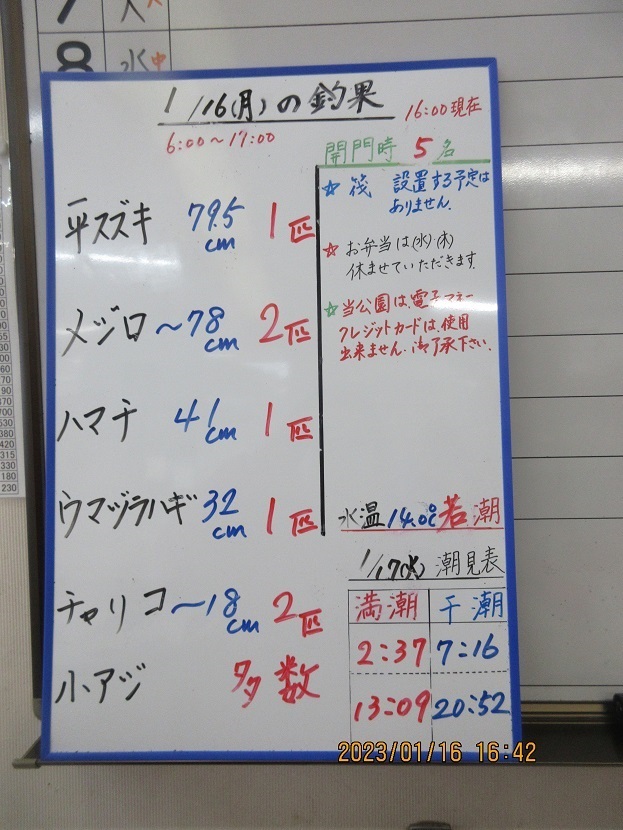 8 水中
1/16(月)の釣果
16:00現在
6:00～17:00
開門時 5名
平スズキ 79.5cm 1匹
メジロ ～78cm 2匹
ハマチ 41cm 1匹
ウマヅラハギ 32cm 1匹
チャリコ ～18cm 2匹
小アジ 多数
☆ 筏 設置する予定は
ありません.
☆ お弁当は(水)(木)
休ませていただきます.
☆ 当公園は、電子マネー
クレジットカードは、使用
出来ません.御了承下さい.
水温 14.0℃ 若潮
1/17(火) 潮見表
満潮 干潮
2:37 7:16
13:09 20:52
2023/01/16 16:42